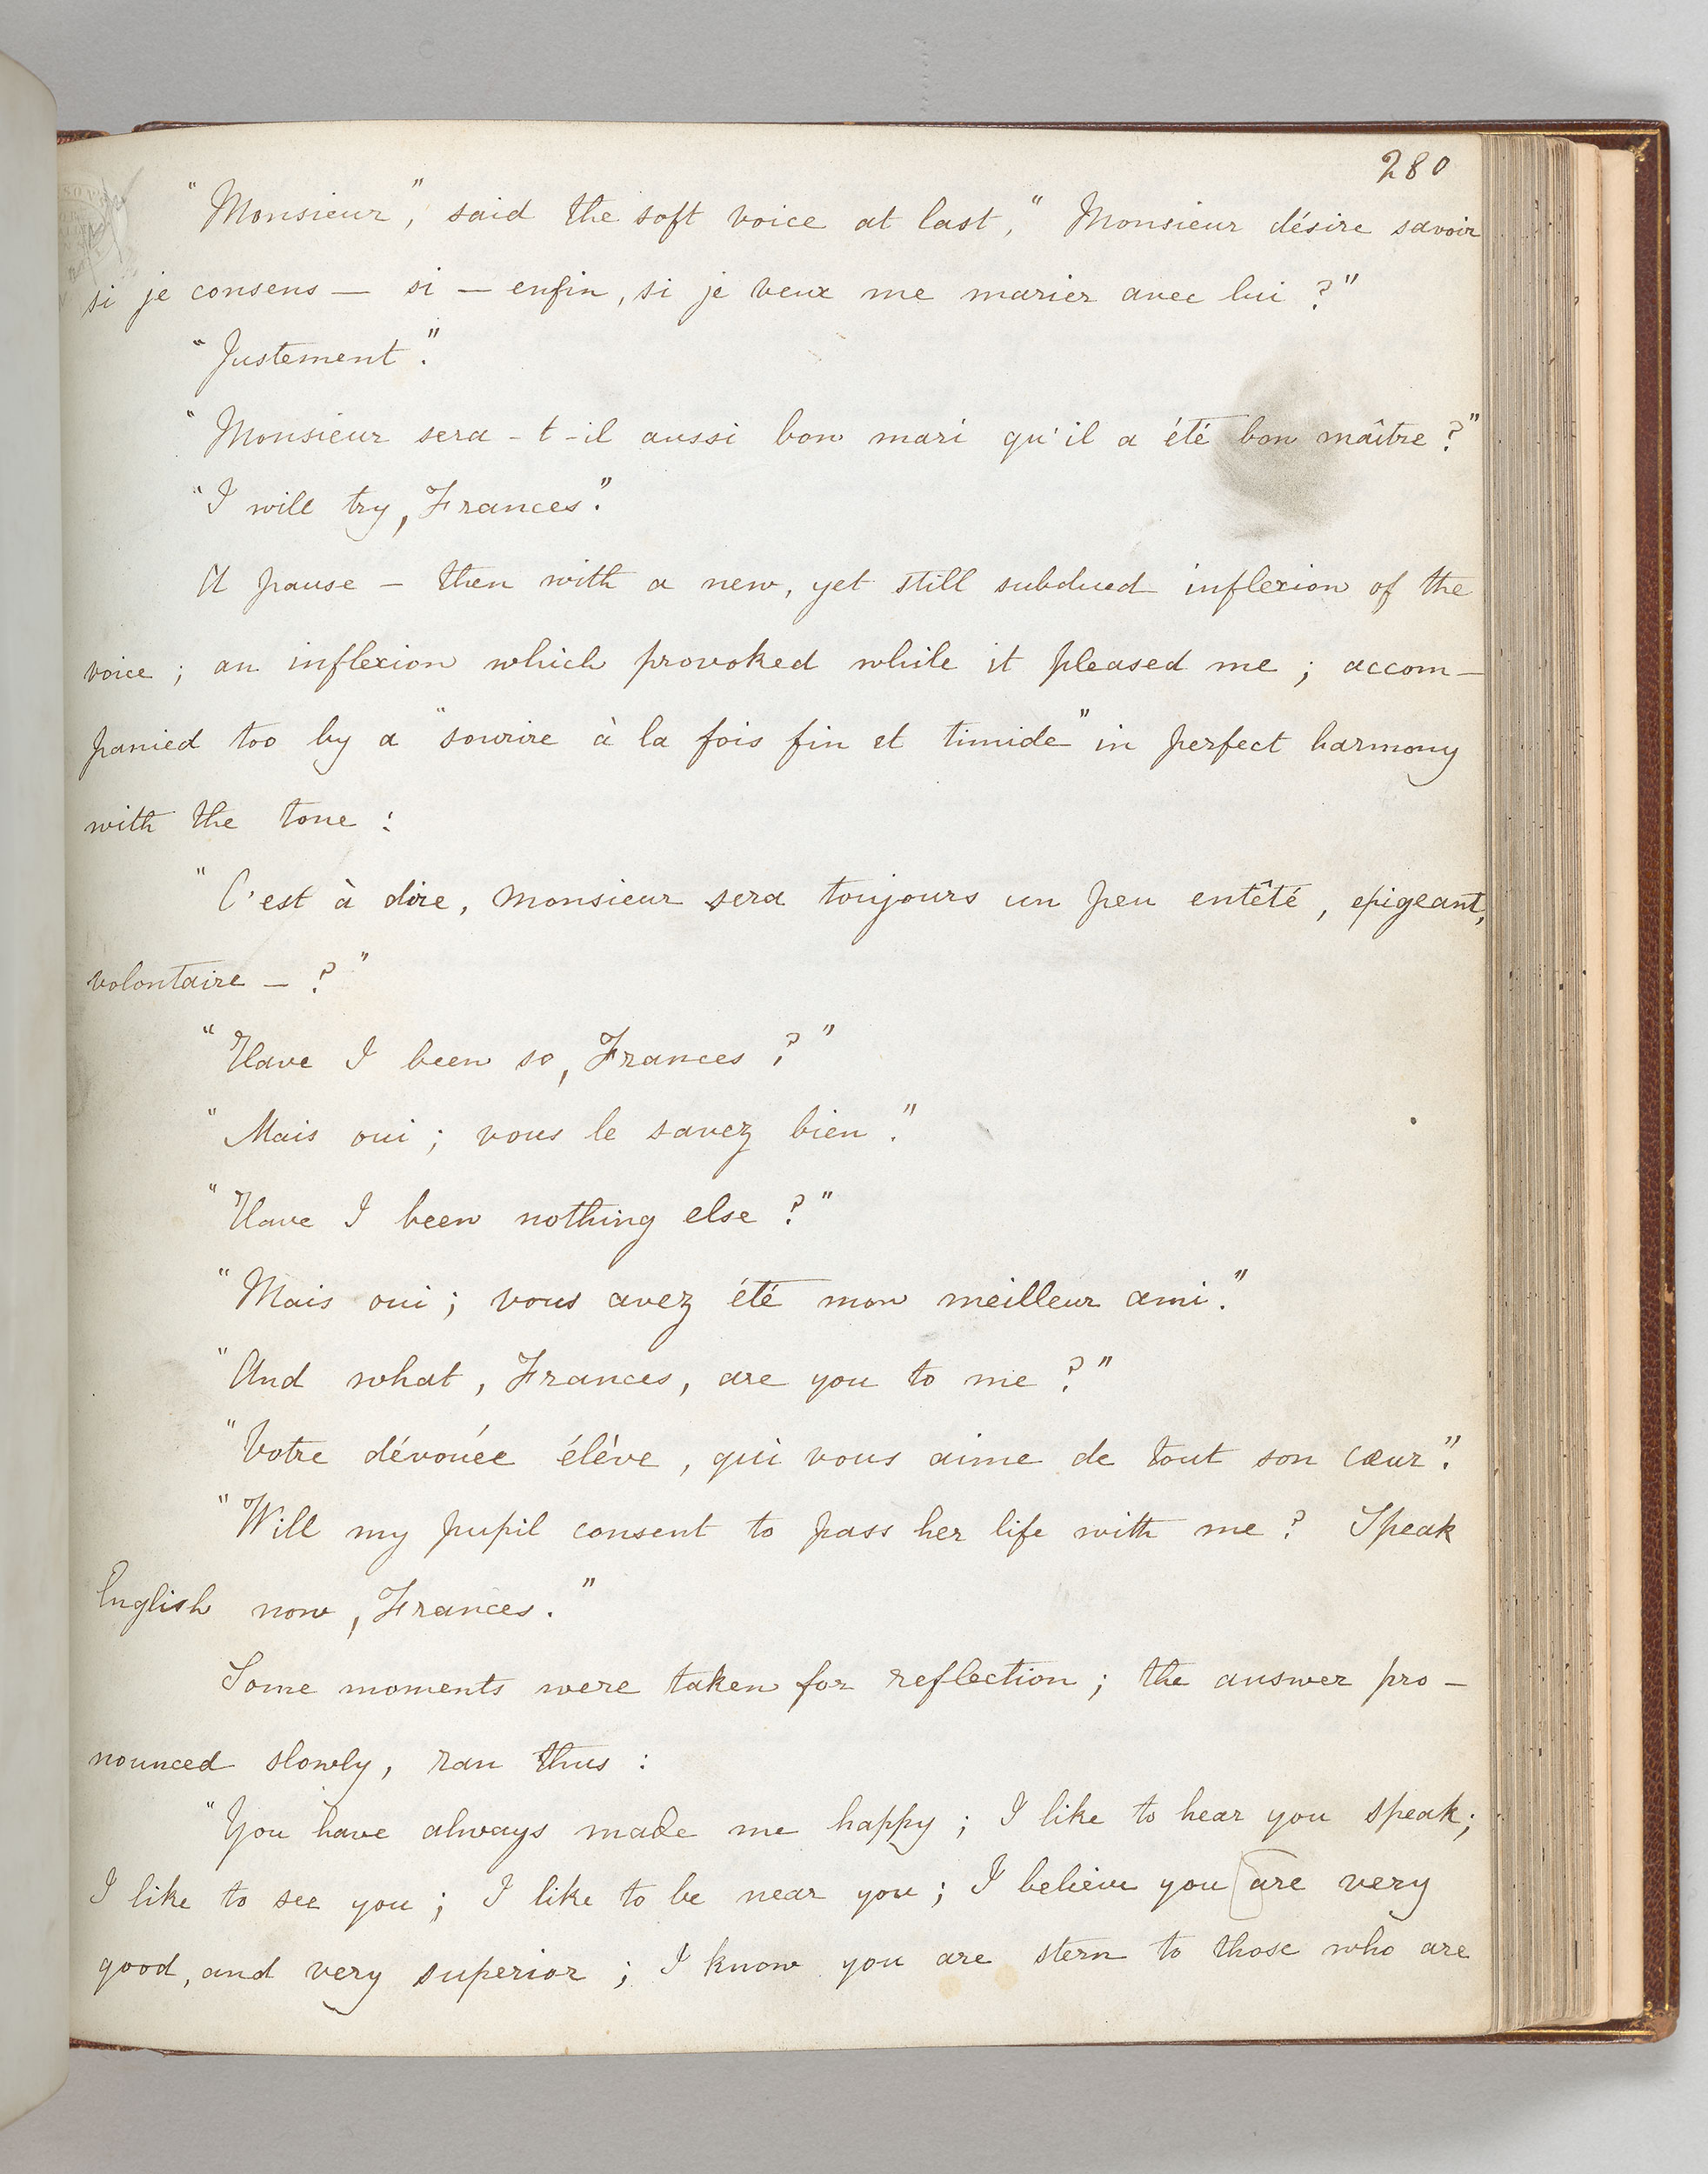 280
"Monsieur," said the soft voice at last, "Monsieur désire savoir
si je consens — si — enfin, si je veux me marier avec lui ?"
"Justement".
"Monsieur sera-t-il aussi bon mari qu'il a été bon maître ?"
"I will try, Frances".
A pause — then with a new, yet still subdued inflexion of the
voice ; an inflexion which provoked while it pleased me ; accom-
panied too by a "sourire à la fois fin et timide" in perfect harmony
with the tone :
"C'est à dire, monsieur sera toujours un peu entêté, exigeant,
volontaire — ?"
"Have I been so, Frances ?"
"Mais oui ; vous le savez bien."
"Have I been nothing else ?"
"Mais oui ; vous avez été mon meilleur ami."
"And what, Frances, are you to me ?"
"Votre dévouée élève, qui vous aime de tout son cœur".
"Will my pupil consent to pass her life with me ? Speak
English now, Frances."
Some moments were taken for reflection ; the answer pro-
nounced slowly, ran thus :
"You have always made me happy ; I like to hear you speak ;
I like to see you ; I like to be near you ; I believe you are very
good, and very superior ; I know you are stern to those who are